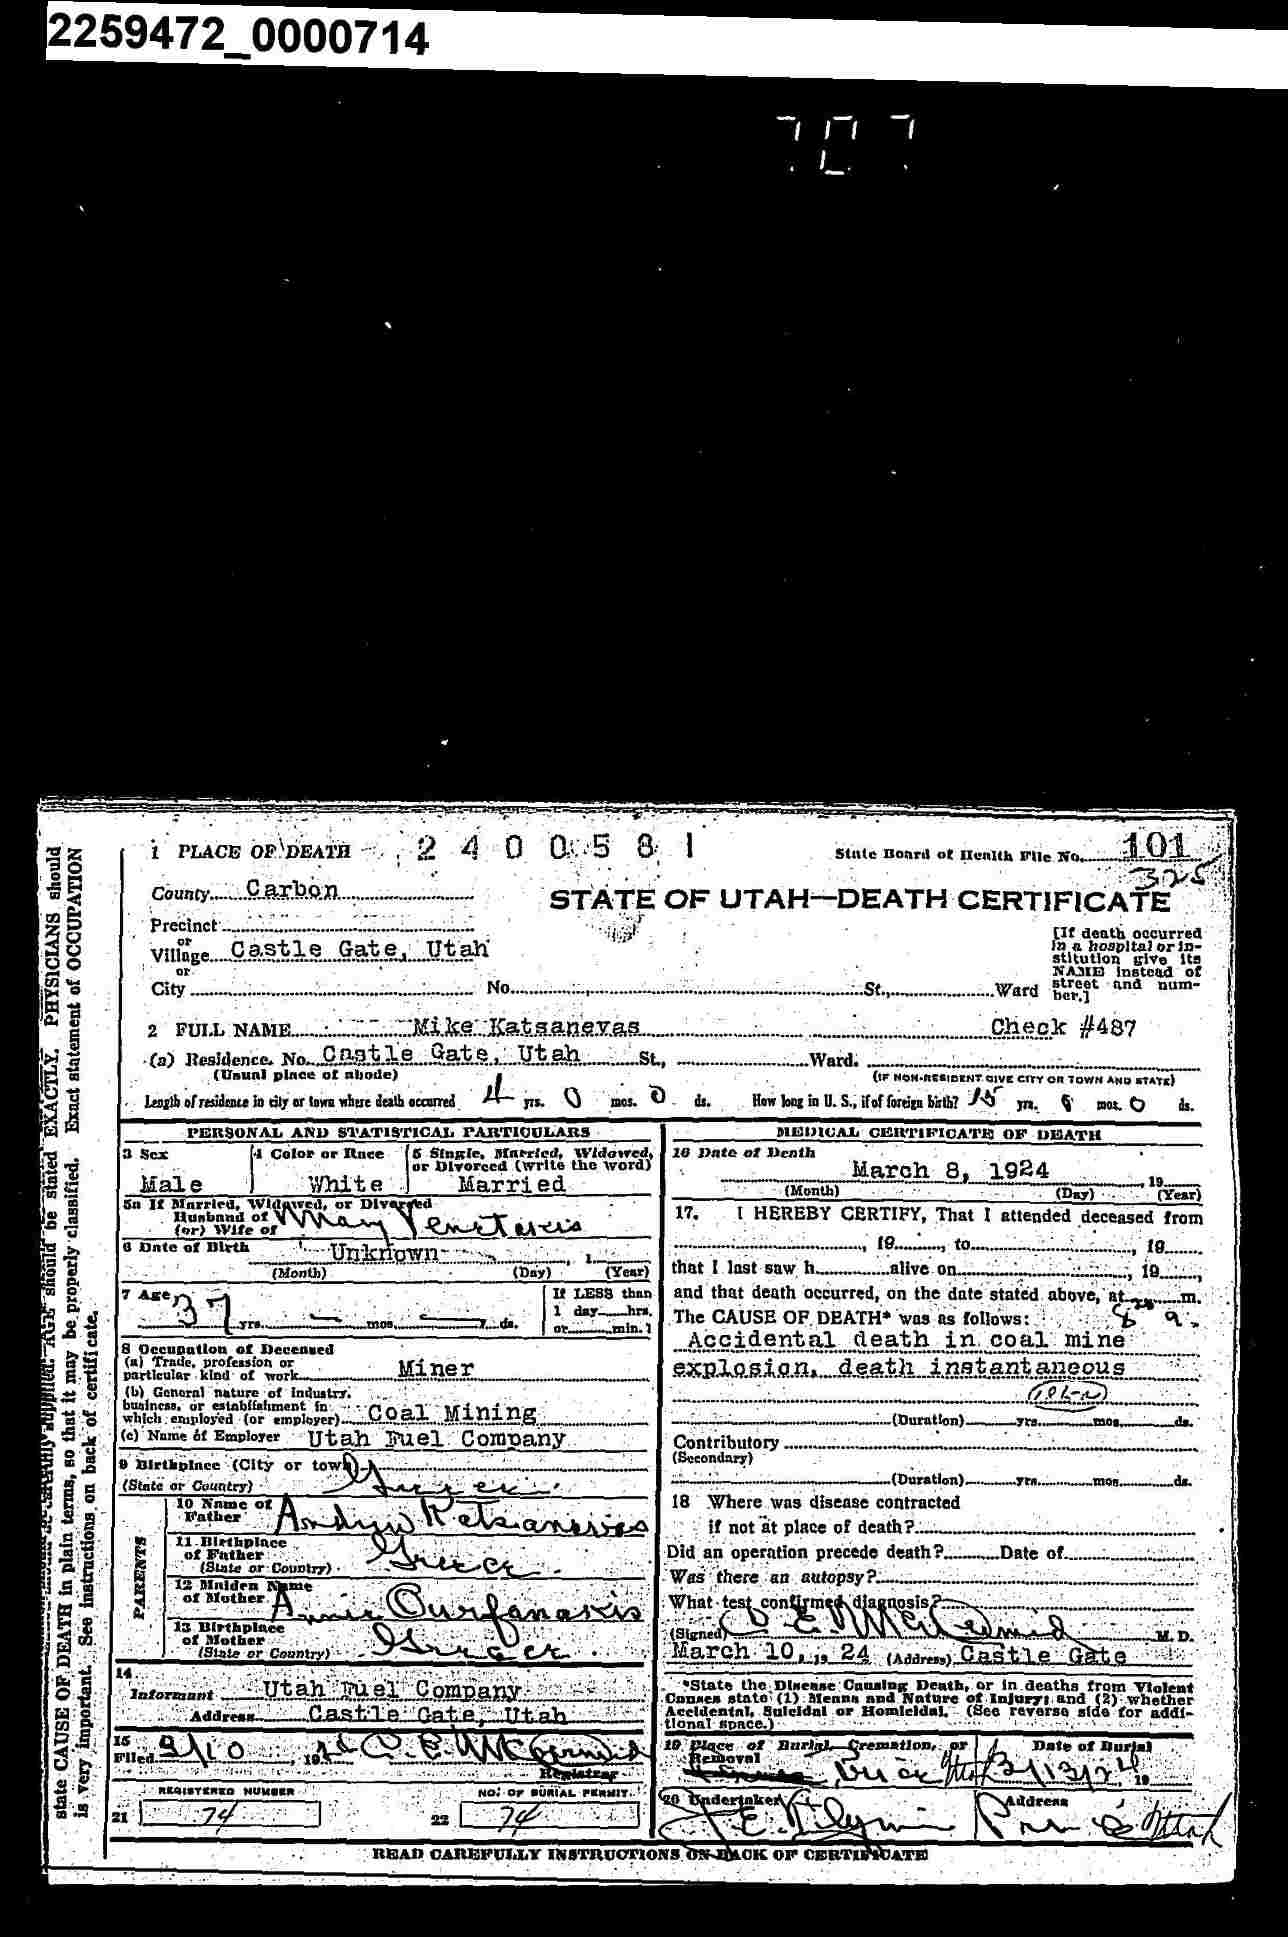 2259472_0000714
707
state CAUSE OF DEATH in plain terms, so that it may be properly classified. Exact statement of OCCUPATION
is very important. See instructions on back of certificate.
AGE should be stated EXACTLY. PHYSICIANS should
1 PLACE OF DEATH 2400581 State Board of Health File No. 101
325
County Carbon STATE OF UTAH—DEATH CERTIFICATE
Precinct
or
Village Castle Gate, Utah
or
City No. St., Ward
[If death occurred
in a hospital or in-
stitution give its
NAME instead of
street and num-
ber.]
2 FULL NAME Mike Katsanevas Check #487
(a) Residence. No. Castle Gate, Utah St., Ward.
(Usual place of abode) (IF NON-RESIDENT GIVE CITY OR TOWN AND STATE)
Length of residence in city or town where death occurred 4 yrs. 0 mos. 0 ds. How long in U. S., if of foreign birth? 15 yrs. 6 mos. 0 ds.
PERSONAL AND STATISTICAL PARTICULARS
3 Sex 4 Color or Race 5 Single, Married, Widowed,
or Divorced (write the word)
Male White Married
5a If Married, Widowed, or Divorced
Husband of
(or) Wife of Mary
6 Date of Birth Unknown, 1
(Month) (Day) (Year)
7 Age 37 yrs. — mos. — ds.
If LESS than
1 day hrs.
or min.?
8 Occupation of Deceased
(a) Trade, profession or
particular kind of work Miner
(b) General nature of industry,
business, or establishment in
which employed (or employer) Coal Mining
(c) Name of Employer Utah Fuel Company
9 Birthplace (City or town)
(State or Country) Greece
PARENTS
10 Name of
Father Andrew Katsanevas
11 Birthplace
of Father
(State or Country) Greece
12 Maiden Name
of Mother Annie Ourfanakis
13 Birthplace
of Mother
(State or Country) Greece
14.
Informant Utah Fuel Company
Address Castle Gate, Utah
15
Filed 3/10, 19 C. E. McDermid
Registrar
REGISTERED NUMBER NO. OF BURIAL PERMIT
21 74 22 74
MEDICAL CERTIFICATE OF DEATH
16 Date of Death
March 8, 1924, 19
(Month) (Day) (Year)
17. I HEREBY CERTIFY, That I attended deceased from
, 19, to, 19
that I last saw h alive on, 19,
and that death occurred, on the date stated above, at m.
The CAUSE OF DEATH* was as follows: 8 a.
Accidental death in coal mine
explosion, death instantaneous
(Duration) yrs. mos. ds.
Contributory
(Secondary)
(Duration) yrs. mos. ds.
18 Where was disease contracted
if not at place of death?
Did an operation precede death? Date of
Was there an autopsy?
What test confirmed diagnosis?
(Signed) C. E. McDermid M. D.
March 10, 19 24 (Address) Castle Gate
*State the Disease Causing Death, or in deaths from Violent
Causes state (1) Means and Nature of Injury; and (2) whether
Accidental, Suicidal or Homicidal. (See reverse side for addi-
tional space.)
19 Place of Burial, Cremation, or Date of Burial
Removal
Price Utah 3/13/24 19
20 Undertaker Address
J. E. Flynn Price Utah
READ CAREFULLY INSTRUCTIONS ON BACK OF CERTIFICATE